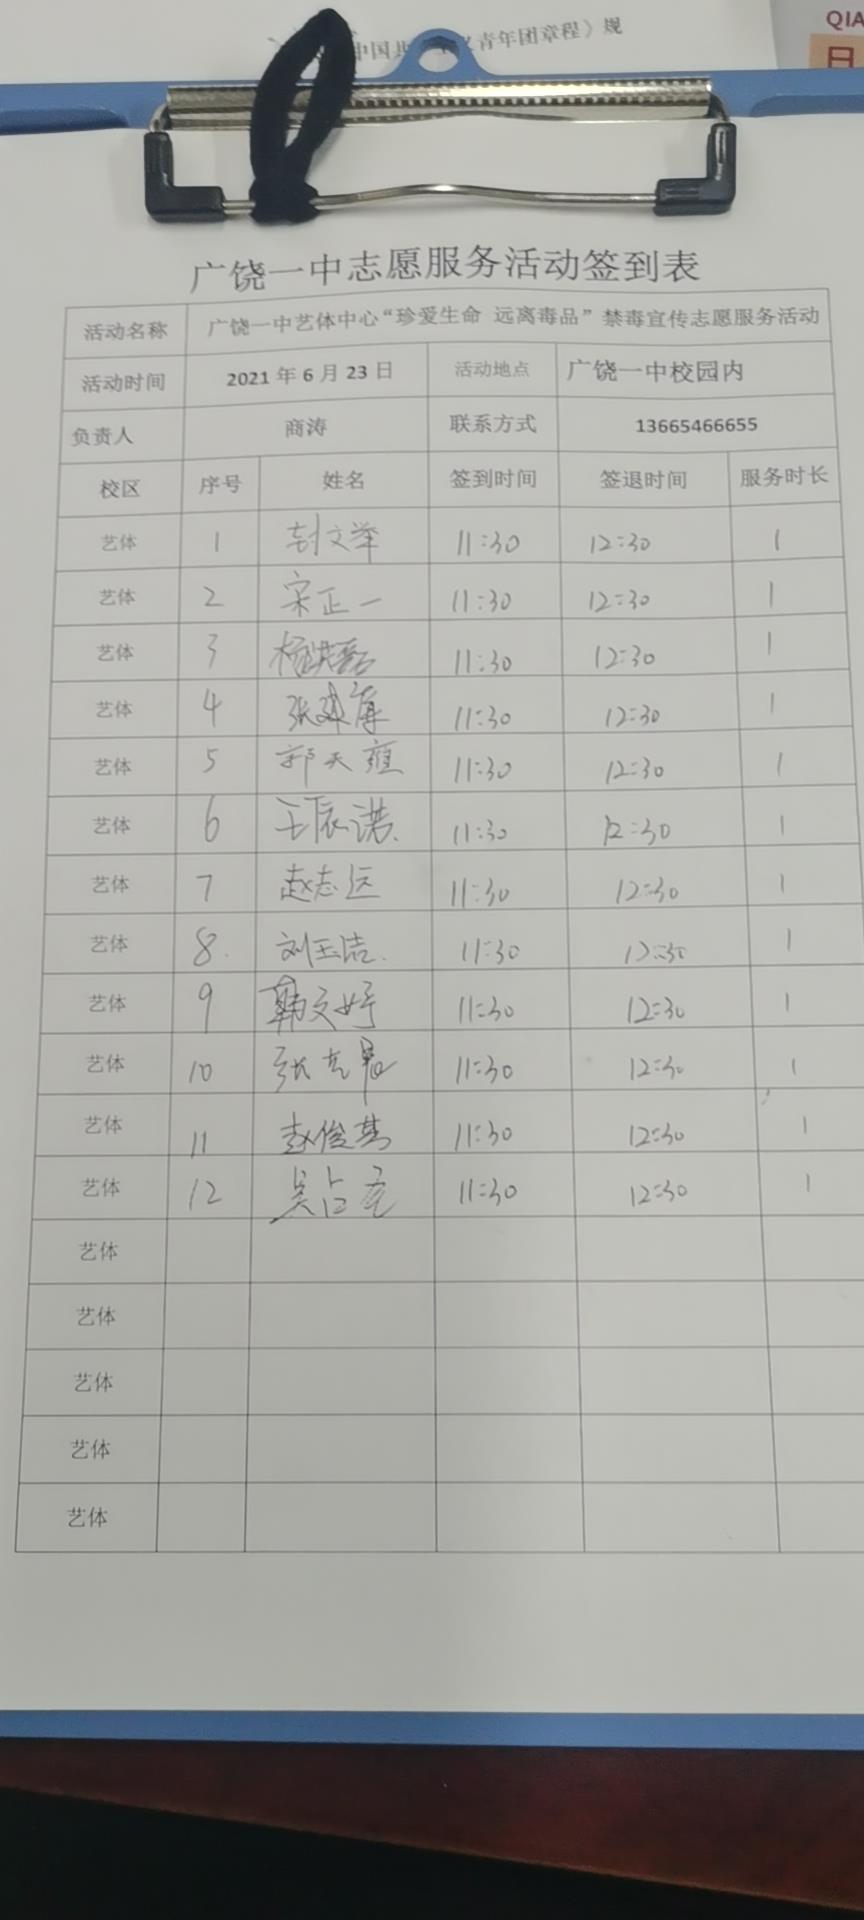 中国共
青年团章程》规
QIA
日
广饶一中志愿服务活动签到表
活动名称 广饶一中艺体中心“珍爱生命 远离毒品”禁毒宣传志愿服务活动
活动时间 2021 年 6 月 23 日 活动地点 广饶一中校园内
负责人 商涛 联系方式 13665466655
校区 序号 姓名 签到时间 签退时间 服务时长
艺体 1 文举 11:30 12:30 1
艺体 2 宋正一 11:30 12:30 1
艺体 3 杨洪磊 11:30 12:30 1
艺体 4 张建 11:30 12:30 1
艺体 5 郭天雍 11:30 12:30 1
艺体 6 王辰诺. 11:30 12:30 1
艺体 7 赵志远 11:30 12:30 1
艺体 8. 刘玉洁. 11:30 12:30 1
艺体 9 韩文妤 11:30 12:30 1
艺体 10 张 11:30 12:30 1
艺体 11 赵俊 11:30 12:30 1
艺体 12 吴占 11:30 12:30 1
艺体
艺体
艺体
艺体
艺体